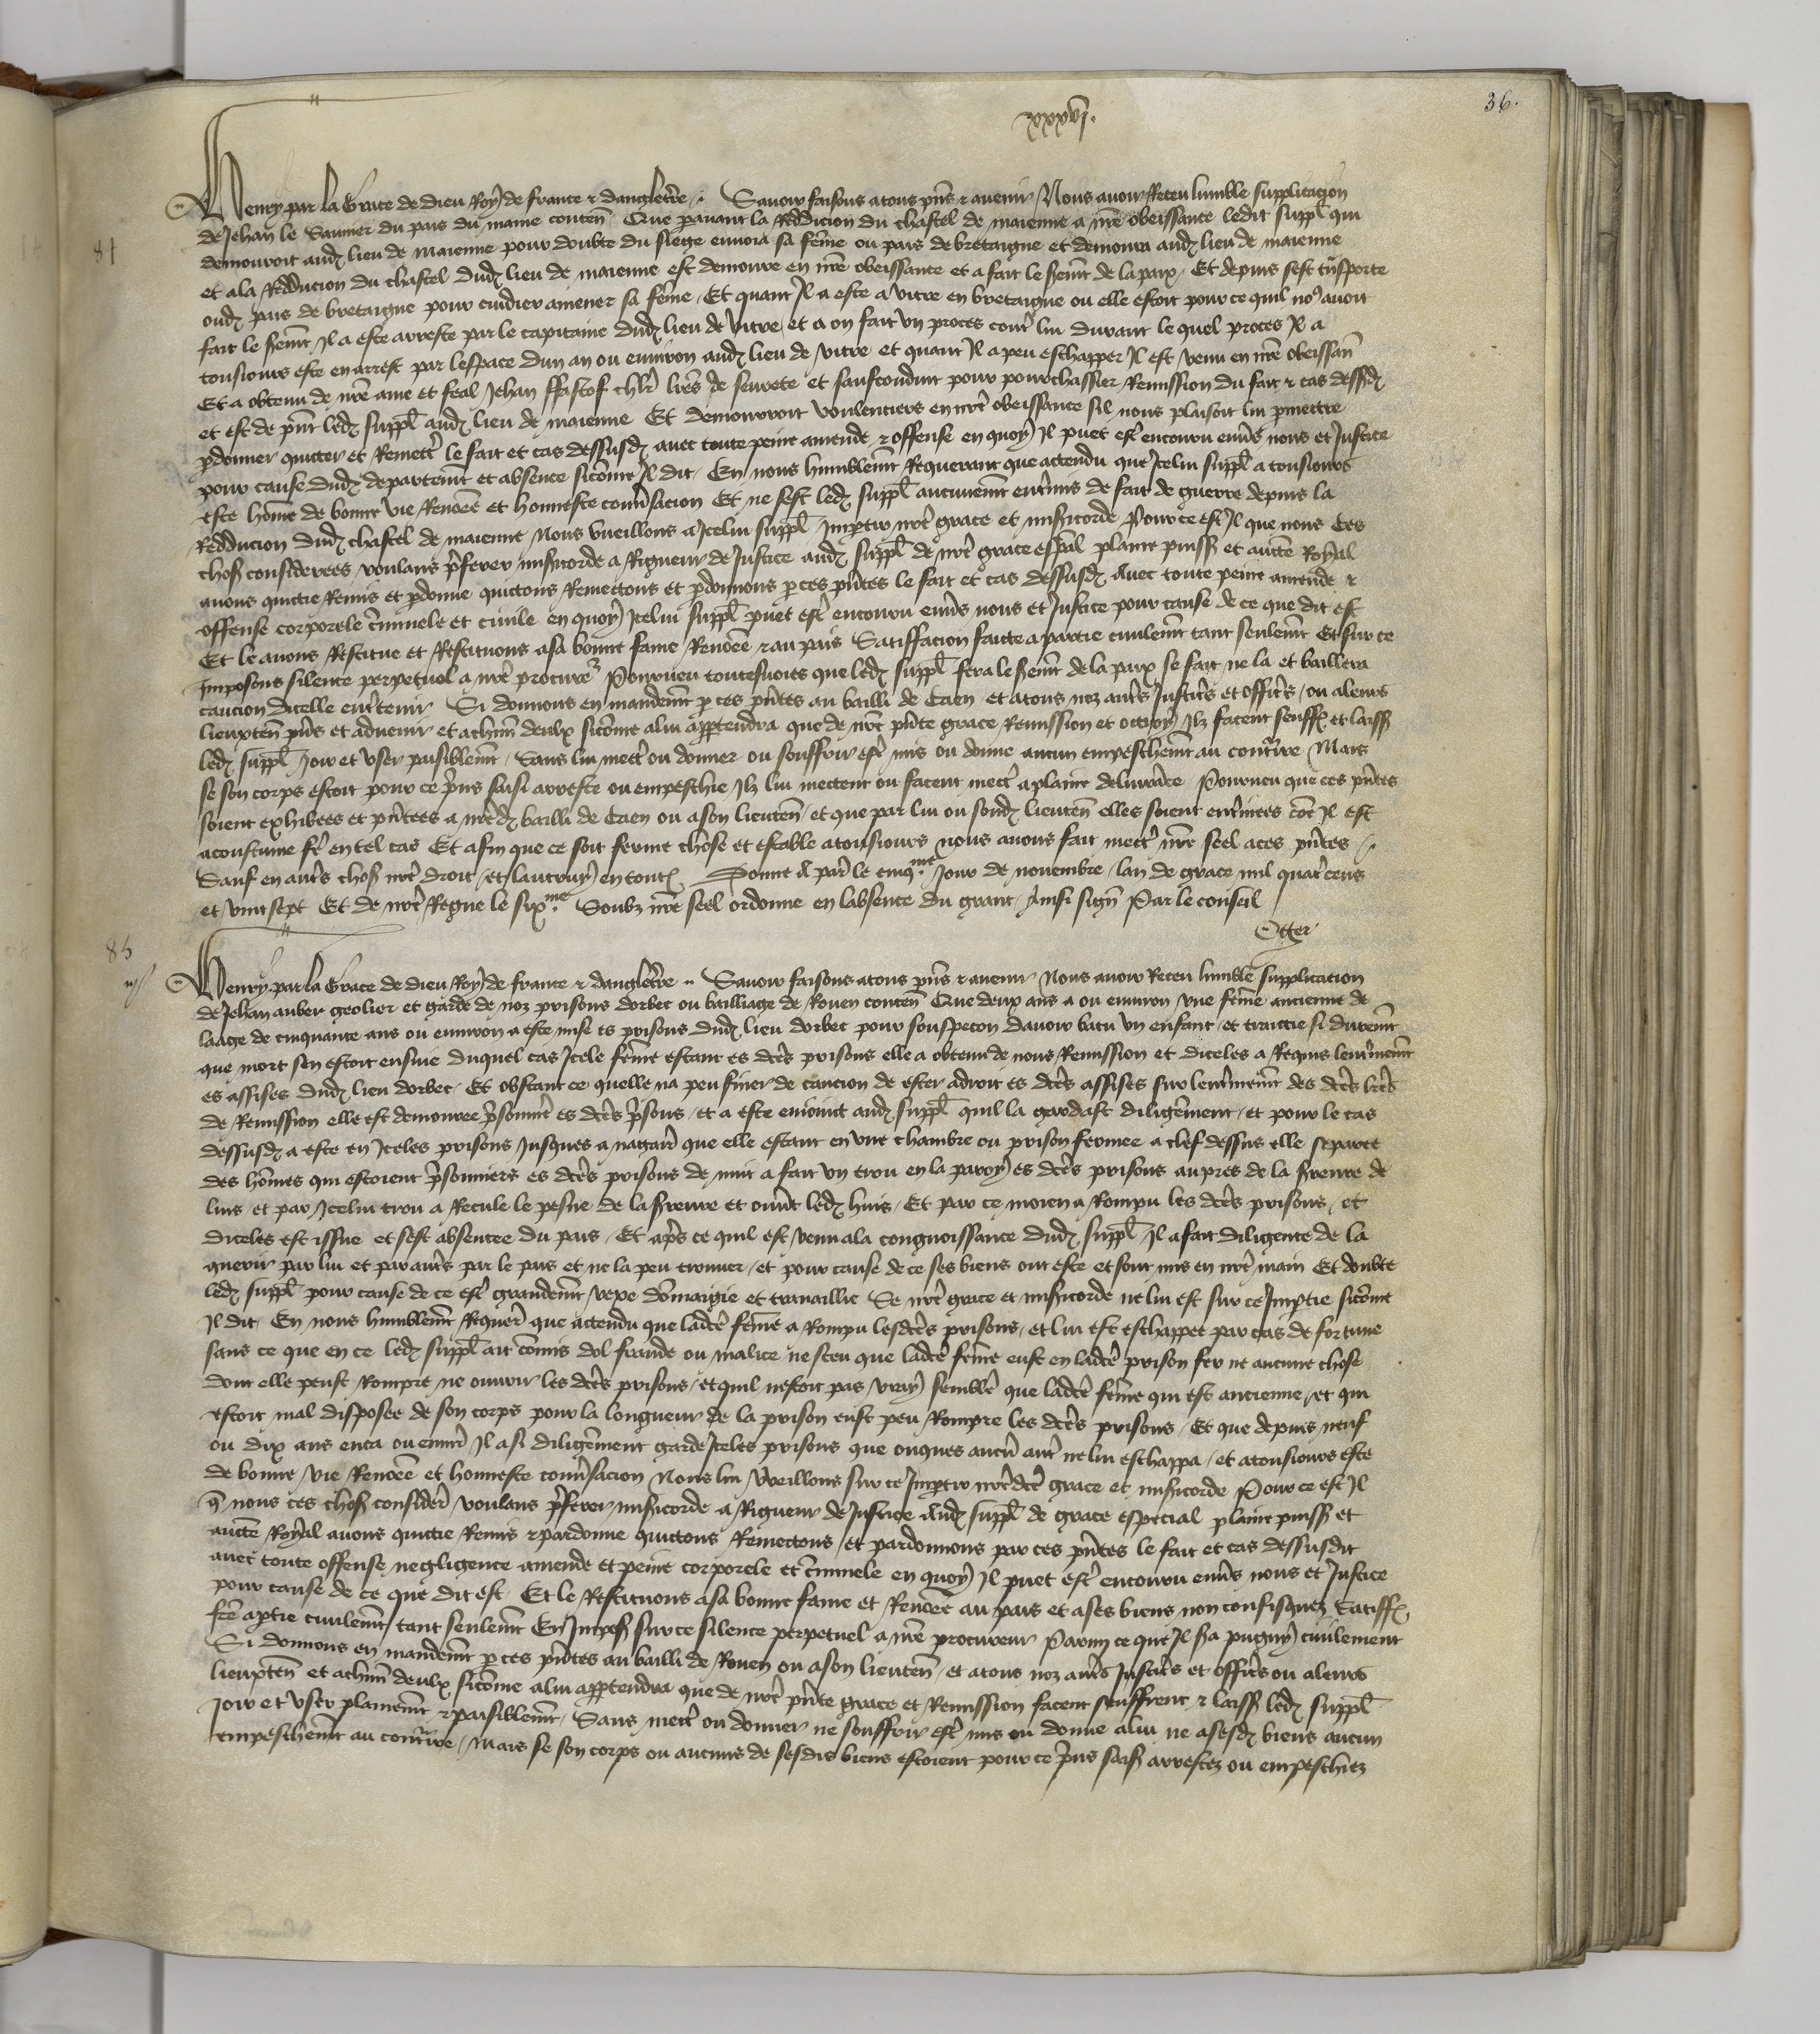 xxxvj.
36.
Henry par la grace de dieu Roy de france & dangleterre. Savoir faisons a tous pns & avenir Nous avoir Receu humble supplicacion
81
de Jehan le Saunier du pais du maine conten Que paravant la Reddicion du chastel de maienne a nre obeissance ledit suppl qui
demouroit aud lieu de maienne pour doubte du siege envoia sa feme ou pais de bretaigne et demoura aud lieu de maienne
et a la Reddicion du chastel dud lieu de maienne est demoure en nre obeissance et a fait le serment de la paix, Et depuis sest tnsporte
oud pais de bretaigne pour cuidier amener sa feme, Et quant Il a este a vitre en bretaigne ou elle estoit pour ce quil no9 avoit
fait le sermt Il a este arreste par le capitaine dud lieu de vitre et a on fait un proces contr lui durant le quel proces Il a
tousiours este en arrest par lespace dun an ou environ aud lieu de vitre et quant Il a peu eschapper Il est venu en nre obeissan
Et a obtenu de nre ame et feal Jehan ffastof chlr lres de seurete et saufconduit pour pourchassier Remission du fait & cas dessusd
et est de pnt led suppl aud lieu de maienne Et demourroit voulentiers en nre obeissance sil nous plaisoit lui pmettre
pdonner quitter et Remettr le fait et cas dessusd avec toute peine amende & offense en quoy Il puet estr encouru envs nous et Justice
pour cause dud departemt et absence sicome Il dit, En nous humblemt Requerant que actendu que Icelui suppl a tousiours
este home de bonne vie Renomee et honneste convsacion Et ne sest led suppl aucunemt entrmis de fait de guerre depuis la
Reddicion dud chastel de maienne Nous vueillons a Icelui suppl Impartir nre grace et misicorde Pour ce est Il que nous Ces
choses considerees voulans prferer misicorde a Rigueur de Justice aud suppl de nre grace espal plaine puiss et aucte Royal
avons quictie Remis et pdonne quictons Remectons et pdonnons p ces pntes le fait et cas dessusd Avec toute peine amende &
offense corporele criminele et civile en quoy Icelui suppl puet estr encouru envs nous et Justice pour cause de ce que dit est
Et le avons Restitue et Restituons a sa bonne fame Renomee & au pais Satiffacion faicte a partie civilemt tant seulemt Et sur ce
Imposons silence perpetuel a nre procur Pourveu toutesvoies que led suppl fera le sermt de la paix se fait ne la et baillera
caucion dicelle entretenir Si donnons en mandemt p ces pntes au bailli de Caen et a tous noz autrs Justicrs et officrs, ou a leurs
lieuxten pns et advenir et a chun deulx sicome a lui appartendra que de nre pnte grace Remission et octroy Ilz facent seuffr et laiss
led suppl Joir et user paisiblemt, Sans lui mectr ou donner ou souffrir estr mis ou donne aucun empeschemt au contrre Mais
se son corps estoit pour ce prins saisi arreste ou empeschie Ilz lui mectent ou facent mectr a plaine delivrace Pourveu que ces pntes
soient exhibees et pntees a nred bailli de Caen ou a son lieuten, et que par lui ou sond lieuten elles soient entrinees come Il est
acoustume fr en tel cas Et afin que ce soit ferme chose et estable a tousiours nous avons fait mectr nre seel a ces pntes
Sauf en autrs choses nre droit, et lautruy en tout Donne A paris le cinqme Jour de novembre, lan de grace mil quatrcens
et vint sept Et de nre Regne le sixme Soubz nre seel ordonne en labsence du grant, Ainsi sign Par le conseil
Otger
85
Henry par la grace de dieu Roy de france & dangleterre Savoir faisons a tous pns & avenir Nous avoir Receu humble supplicacion
de Jehan auber geolier et garde de noz prisons dorbec ou bailliage de Rouen conten Que deux ans a ou environ une feme ancienne de
laage de cinquante ans ou environ a este mise es prisons dud lieu dorbec pour souspecon davoir batu un enfant, et traictie si duremt
que mort sen estoit ensuie duquel cas Icele feme estant es dctes prisons elle a obtenu de nous Remission et diceles a Requis lentrinemt
es assises dud lieu dorbec, Et obstant ce quelle na peu finer de caucion de ester a droit es dctes assises sur lentrinemt des dctes lres
de Remission elle est demouree prsonnre es dctes prsons, et a este enioint aud suppl quil la gardast diligemment, et pour le cas
dessusd a este en Iceles prisons Jusques a nagair que elle estant en une chambre ou prison fermee a clef dessus elle separee
des homes qui estoient prsonniers es dctes prisons de nuit a fait un trou en la paroy es dctes prisons aupres de la sreure de
luis et par Icelui trou a Recule le pesne de la sreure et ouvt led huis, Et par ce moien a Rompu les dctes prisons, et
diceles est issue et sest absentee du pais, Et aprs ce quil est venu a la congnoissance dud suppl Il a fait diligence de la
querir par lui et par autrs par le pais et ne la peu trouver, et pour cause de ce ses biens ont este et sont mis en nre main Et doubte
led suppl pour cause de ce estr grandemt vexe domaigie et travaillie Se nre grace et misicorde ne lui est sur ce Impartie sicome
Il dit, En nous humblemt Requer que actendu que ladcte feme a Rompu lesdctes prisons, et lui est eschappee par cas de fortune
sans ce que en ce led suppl ait comis dol fraude ou malice ne sceu que ladcte feme eust en ladcte prison fer ne aucune chose
dont elle peust Rompre ne ouvrir les dctes prisons, et quil nestoit pas vray semble que ladcte feme qui est ancienne, et qui
estoit mal disposee de son corps pour la longueur de la prison eust peu Rompre les dctes prisons, Et que depuis neuf
ou dix ans enca ou envir Il a si diligemment garde Iceles prisons que onques aucun autr ne lui eschappa, et a tousiours este
de bonne vie Renomee et honneste convsacion Nous lui vueillons sur ce Impartir nre dcte grace et misicorde Pour ce est Il
q nous ces choses consider voulans prferer misicorde a Rigueur de Justice Aud suppl de grace especial plaine puiss et
aucte Royal avons quictie Remis & pardonne quictons Remectons, et pardonnons par ces pntes le fait et cas dessusdit
avec toute offense negligence amende et peine corporele et criminele en quoy Il puet estr encouru envs nous et Justice
pour cause de ce que dit est, Et le Restituons a sa bonne fame et Renomee au pais et a ses biens non confisquez Satiff
fce a ptie civilemt, tant seulemt En Impos sur ce silence perpetuel a nre procureur Parmi ce que Il sa pugny civilement
Si donnons en mandemt p ces pntes au bailli de Rouen ou a son lieuten, et a tous noz autrs Justicrs et officrs ou a leurs
lieuxten et a chun deulx sicome a lui appartendra que de nre pnte grace et Remission facent seuffrent & laiss led suppl
Joir et user plainemt & paisiblemt, Sans mectr ou donner ne souffrir estr mis ou donne a lui ne a sesd biens aucun
empeschemt au contrre, mais se son corps ou aucuns de sesdis biens estoient pour ce prins sais arrestez ou empeschiez